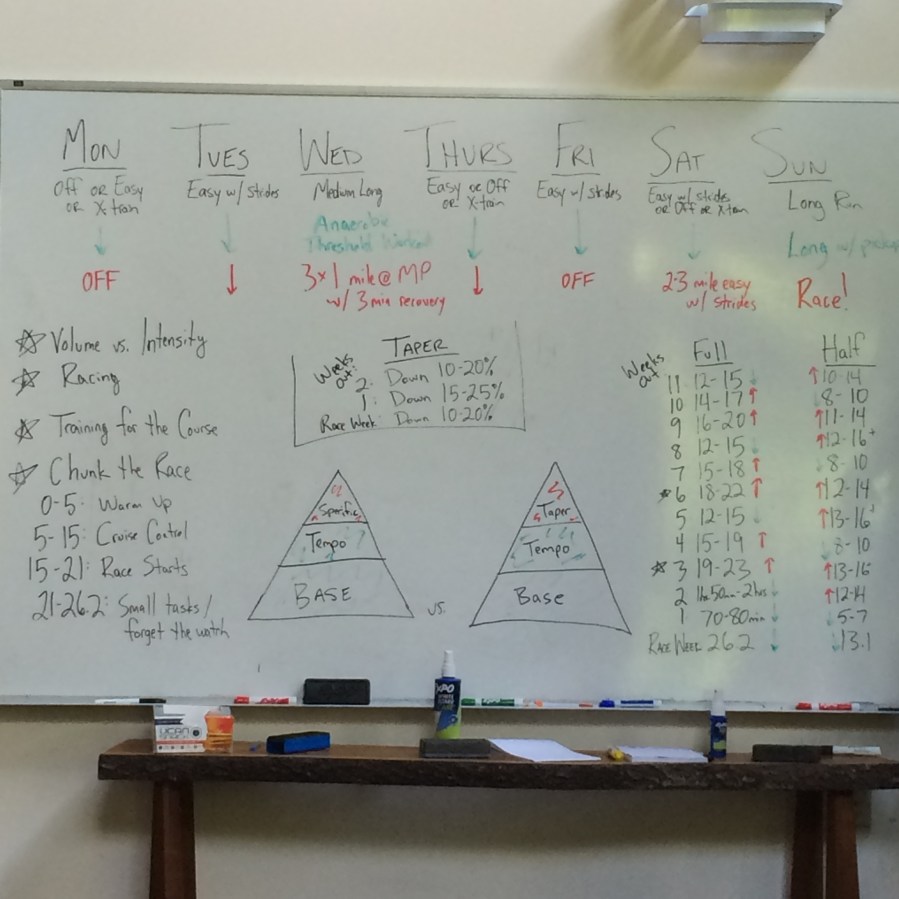 MON TUES WED THURS FRI SAT SUN
Off or Easy
or X-train
Easy w/ strides
Medium Long
Easy or Off
or X-train
Easy w/ strides
Easy w/ strides
or Off or X-train
Long Run
Anaerobic
Threshold Workout
Long w/
OFF
3x1 mile @ MP
w/ 3 min recovery
OFF
2-3 mile easy
w/ strides
Race!
Volume vs. Intensity
Racing
Training for the Course
Chunk the Race
0-5: Warm Up
5-15: Cruise Control
15-21: Race Starts
21-26.2: Small tasks/
forget the watch
TAPER
Weeks
out:
2: Down 10-20%
1: Down 15-25%
Race Week: Down 10-20%
Specific
Tempo
BASE
vs.
Taper
Tempo
Base
Weeks
out:
Full Half
11 12-15 10-14
10 14-17 8-10
9 16-20 11-14
8 12-15 12-16+
7 15-18 8-10
6 18-22 12-14
5 12-15 13-16
4 15-19 8-10
3 19-23 13-16
2 1hr 50min-2hrs 12-14
1 70-80min 5-7
RACE WEEK 26.2 13.1
UCAN
EXPO